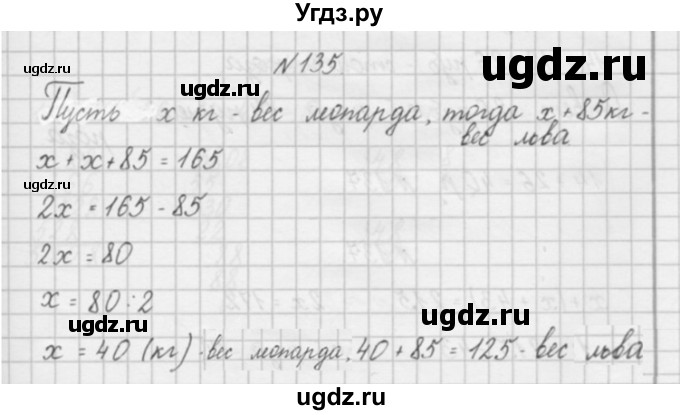 Угдз.ру
№135
Пусть x кг - вес леопарда, тогда x + 85 кг -
вес льва
x + x + 85 = 165
2x = 165 - 85
2x = 80
x = 80 : 2
x = 40 (кг) - вес леопарда. 40 + 85 = 125 - вес льва
ugdz.ru
ugdz.ru
ugdz.ru
ugdz.ru
ugdz.ru
ugdz.ru
ugdz.ru